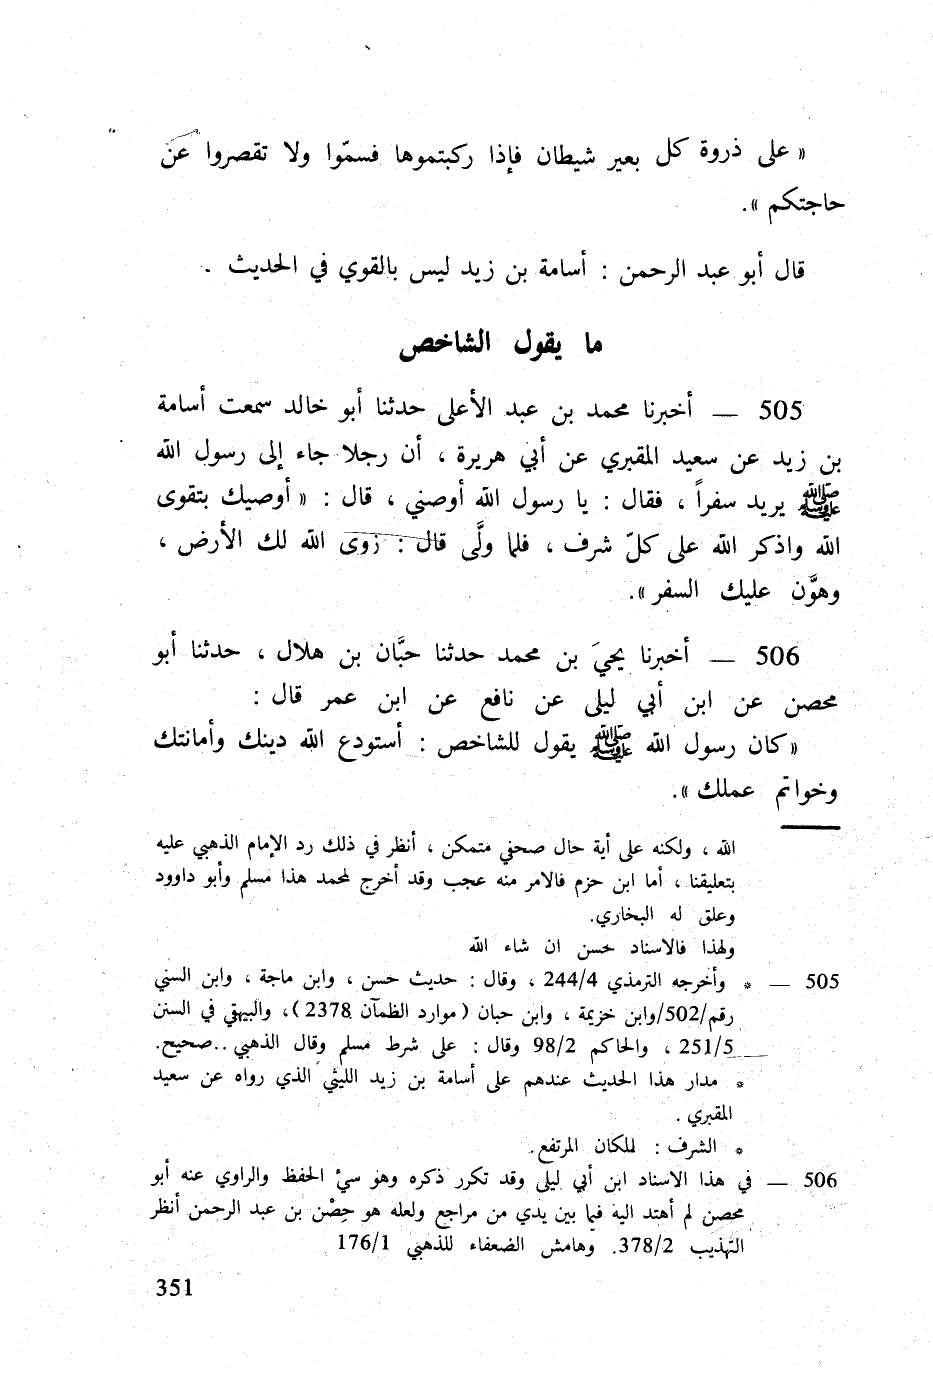 « على ذروة كل بعير شيطان فإذا ركبتموها فسمّوا ولا تقصروا عن
حاجتكم ».
قال أبو عبد الرحمن : أسامة بن زيد ليس بالقوي في الحديث .
ما يقول الشاخص
505 — أخبرنا محمد بن عبد الأعلى حدثنا أبو خالد سمعت أسامة
بن زيد عن سعيد المقبري عن أبي هريرة ، أن رجلا جاء إلى رسول الله
ﷺ يريد سفراً ، فقال : يا رسول الله أوصني ، قال : « أوصيك بتقوى
الله واذكر الله على كلّ شرف ، فلما ولَّى قال : زوى الله لك الأرض ،
وهوَّن عليك السفر ».
506 — أخبرنا يحيَ بن محمد حدثنا حبَّان بن هلال ، حدثنا أبو
محصن عن ابن أبي ليلى عن نافع عن ابن عمر قال :
« كان رسول الله ﷺ يقول للشاخص : أستودع الله دينك وأمانتك
وخواتم عملك ».
الله ، ولكنه على أية حال صحفي متمكن ، أنظر في ذلك رد الإمام الذهبي عليه
بتعليقنا ، أما ابن حزم فالامر منه عجب وقد أخرج لمحمد هذا مسلم وأبو داوود
وعلق له البخاري.
ولهذا فالاسناد حسن ان شاء الله
505 — * وأخرجه الترمذي 244/4 ، وقال : حديث حسن ، وابن ماجة ، وابن السني
رقم/502/وابن خزيمة ، وابن حبان (موارد الظمآن 2378)، والبيهقي في السنن
251/5 ، والحاكم 98/2 وقال : على شرط مسلم وقال الذهبي ..صحيح.
* مدار هذا الحديث عندهم على أسامة بن زيد الليثي الذي رواه عن سعيد
المقبري .
* الشرف : للمكان المرتفع.
506 — في هذا الاسناد ابن أبي ليلى وقد تكرر ذكره وهو سيئ الحفظ والراوي عنه أبو
محصن لم أهتد اليه فيما بين يدي من مراجع ولعله هو حِصْن بن عبد الرحمن أنظر
التهذيب 378/2. وهامش الضعفاء للذهبي 176/1
351